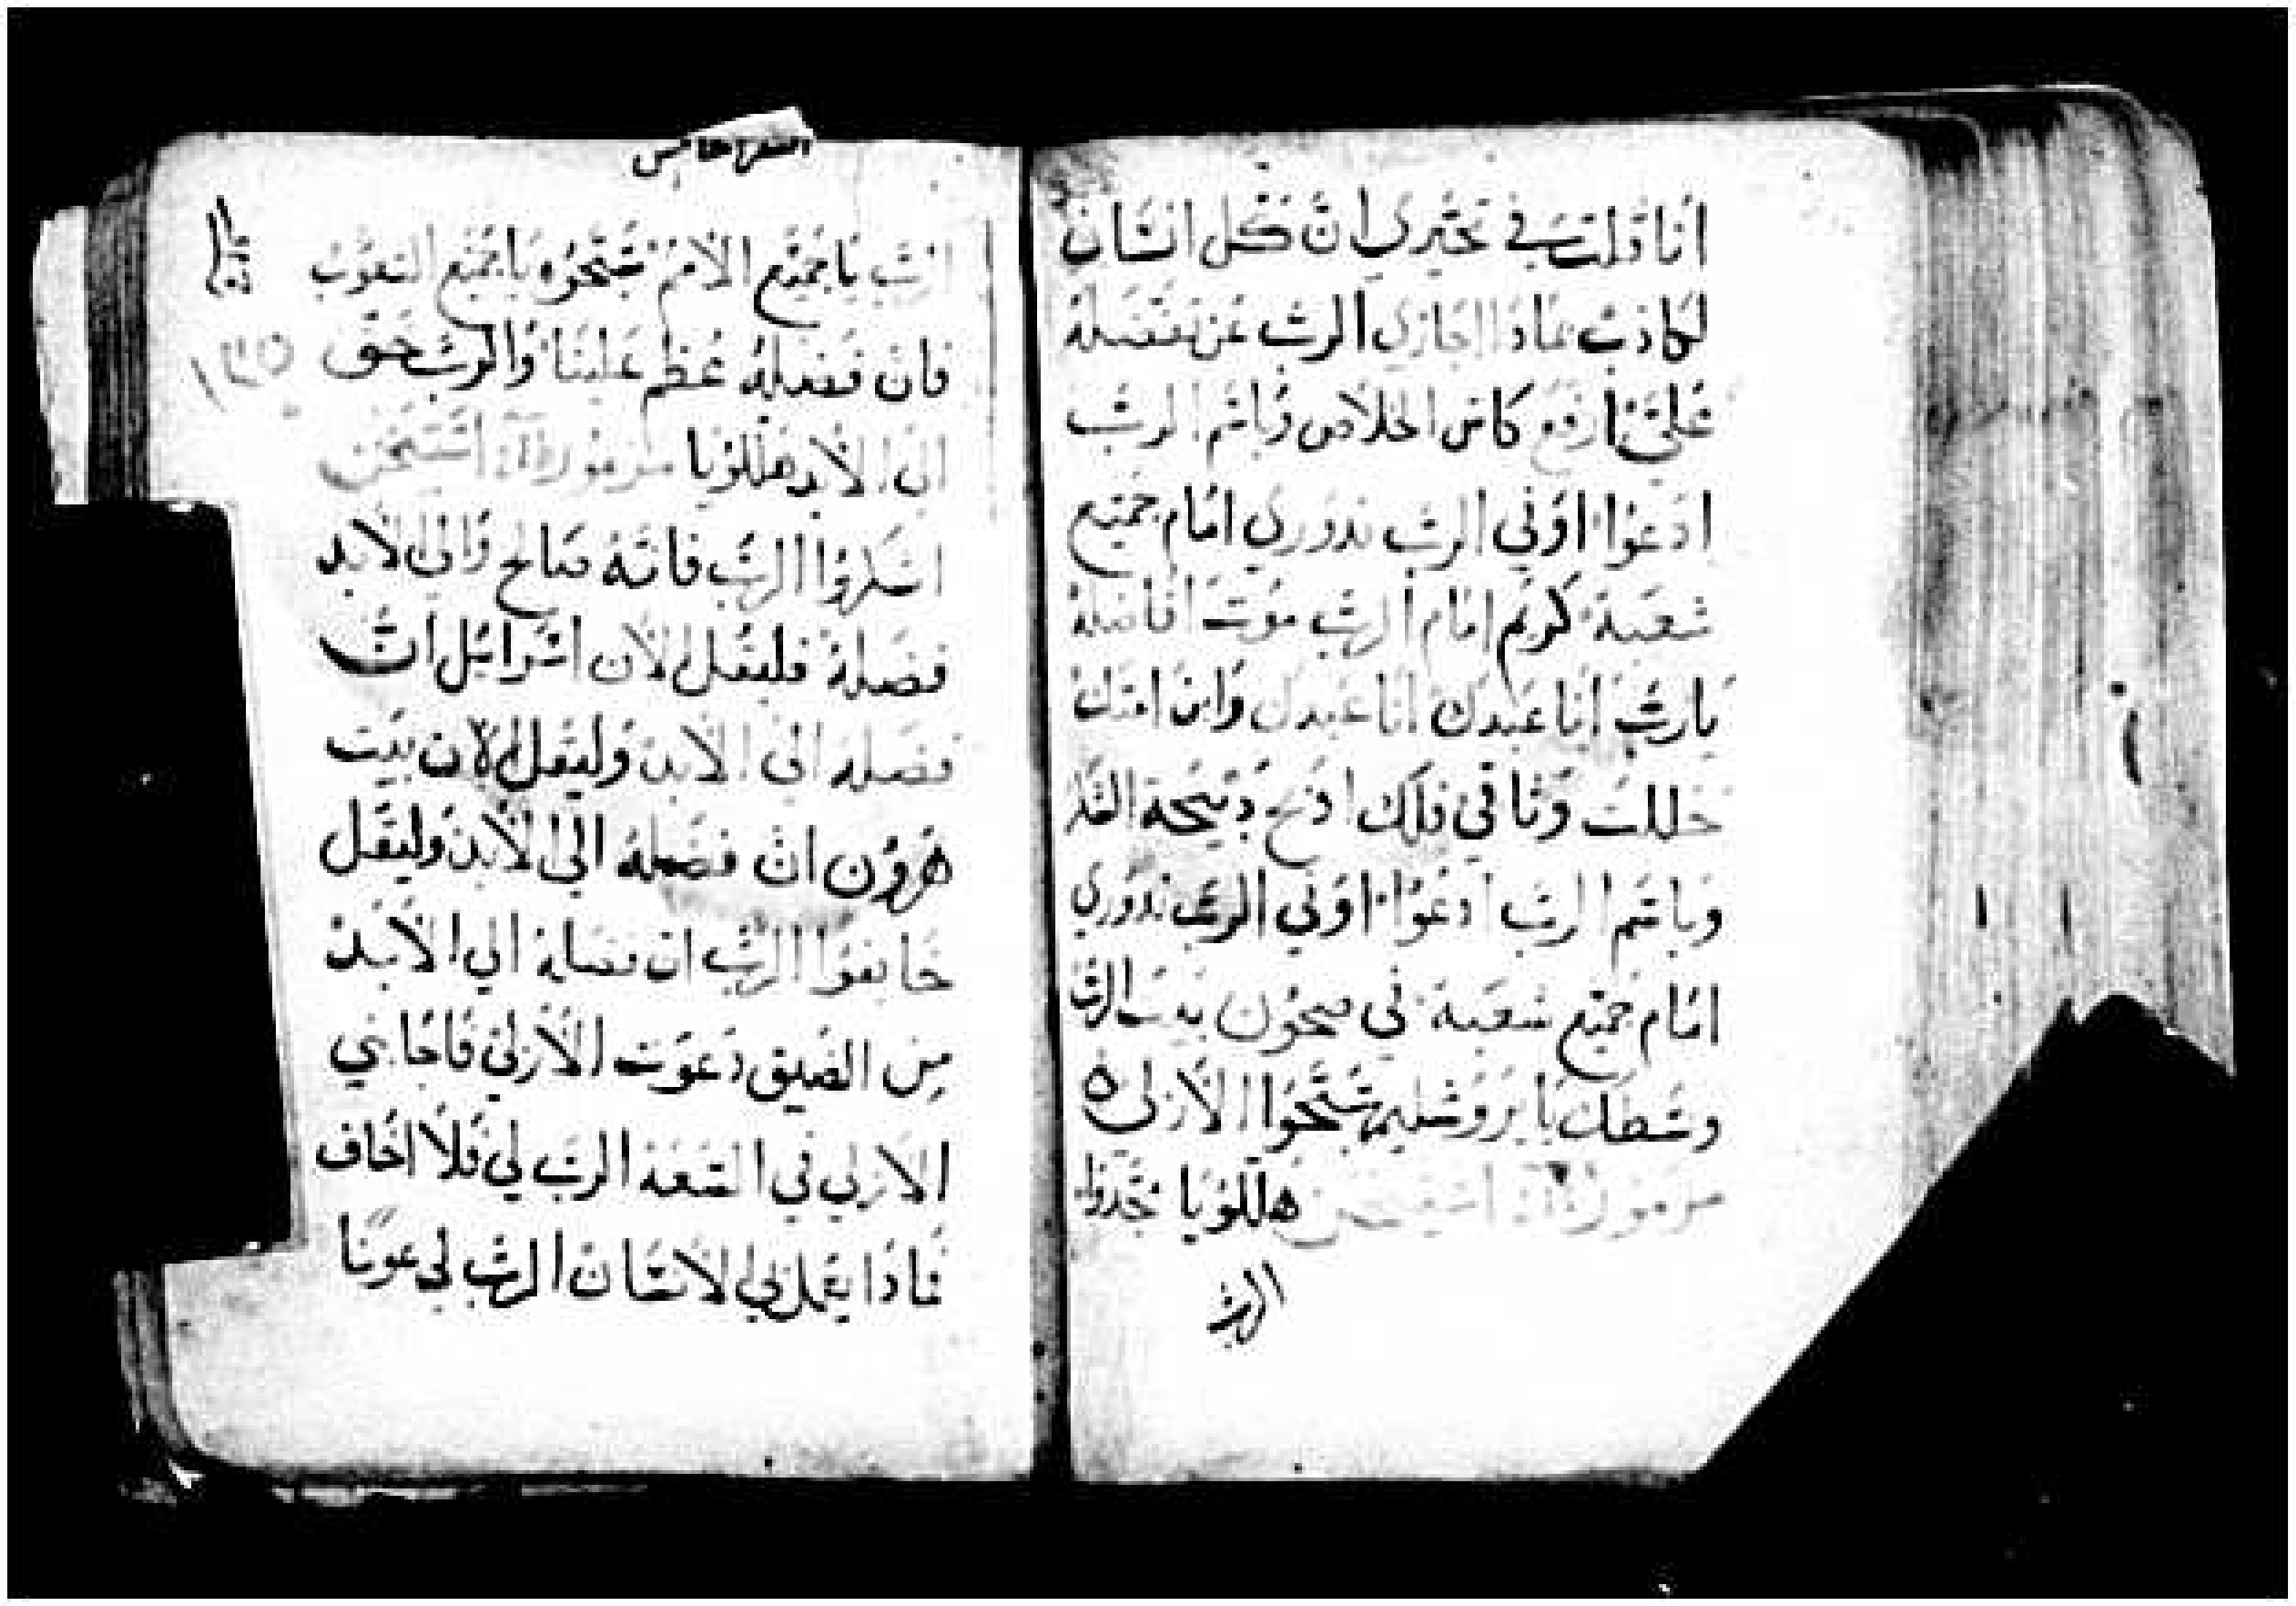 أنا قلت في تحيري ان كل انسان
لكاذب بماذا اجازي الرب عن فضله
علي ارفع كاس الخلاص وباسم الرب
ادعوا اوفي الرب ندوري امام جميع
شعبه كريم امام الرب موت افاضله
يا رب أنا عبدك أنا عبدك وابن امتك
حللت وثاقي فلك ادبح دبيحة
وباسم الرب ادعوا اوفي الرب ندوري
امام جميع شعبه في صحون بيت الرب
وسطك يا يروشليم سبحوا الأزلي ه
مزمور هللويا مجدوا
الرب
السفر الخامس
الرب يا جميع الأمم سبحوه يا جميع الشعوب
فان فضله عظم علينا والرب حق
الى الابد هللويا مزمور
اشكروا الرب فانه صالح والى الابد
فضله فليقل الان اسرائيل ان
فضله الى الابد وليقل الان بيت
هرون ان فضله الى الأبد وليقل
خايفوا الرب ان فضله الي الأبد
من الضيق دعوت الأزلي فاجابني
الازلي في السعه الرب لي فلا اخاف
مادا يعمل بي الانسان الرب لي عونا